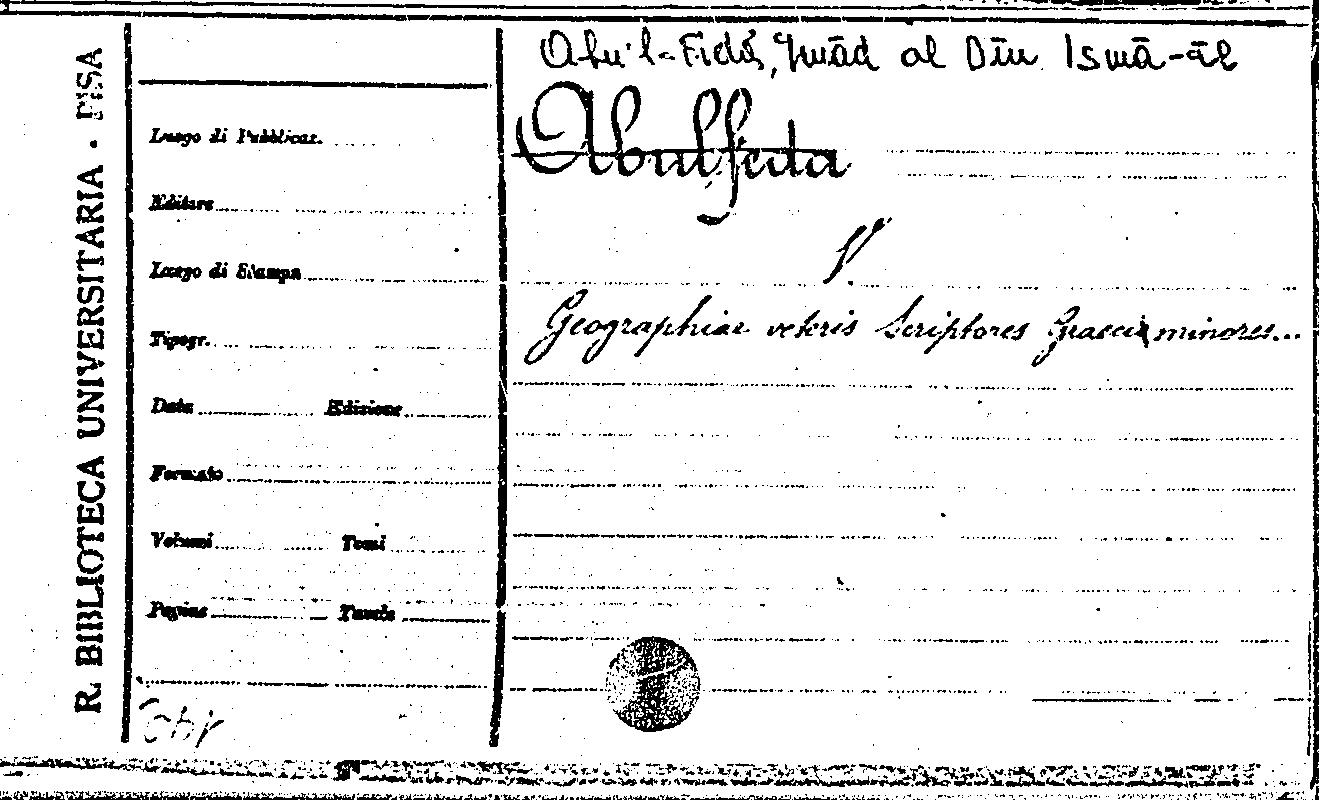 R. BIBLIOTECA UNIVERSITARIA - PISA
Abu'l-Fidá, Imād al Dīn Ismā-āl
Abulfeda
V.
Geographiae veteris Scriptores Graeci minores...
Luogo di Pubblicaz.
Editore
Luogo di Stampa
Tipogr.
Data Edizione
Formato
Volumi Tomi
Pagine Tavole